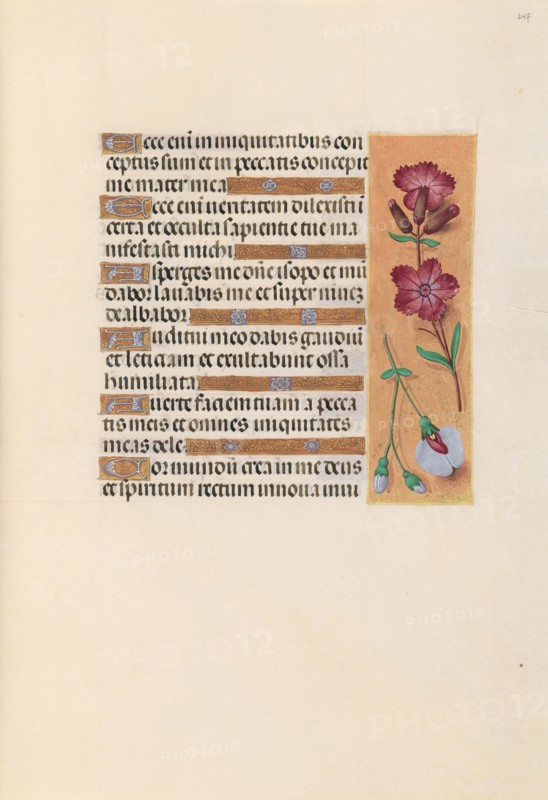 247
Ecce eni in iniquitatibus con
ceptus sum et in peccatis concepit
me mater mea
Ecce eni ueritatem dilexisti i
certa et occulta sapientie tue ma
nifestasti michi
Asperges me dne isopo et mū
dabor lauabis me et super niuez
dealbabor
Auditui meo dabis gaudiū
et leticiam et exultabunt ossa
humiliata
Auerte faciem tuam a pecca
tis meis et omnes iniquitates
meas dele
Cor mundū crea in me deus
et spiritum rectum innoua in ui
PHOTO12
PHOTO12
PHOTO12
PHOTO12
PHOTO12
PHOTO12
PHOTO12